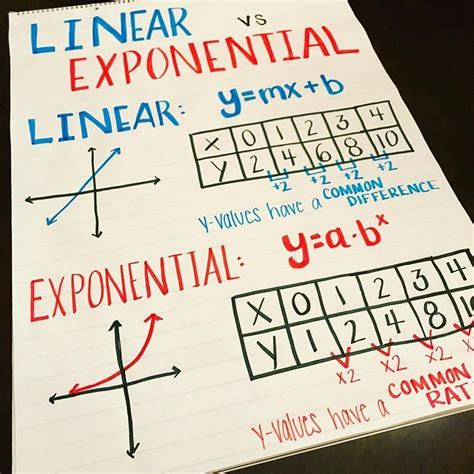 LINEAR vs
EXPONENTIAL
LINEAR: y=mx+b
X 0 1 2 3 4
Y 2 4 6 8 10
+2 +2 +2 +2
y-values have a COMMON
DIFFERENCE
EXPONENTIAL: y=a·bˣ
X 0 1 2 3 4
Y 1 2 4 8
x2 x2 x2 x2
y-values have a COMMON
RAT